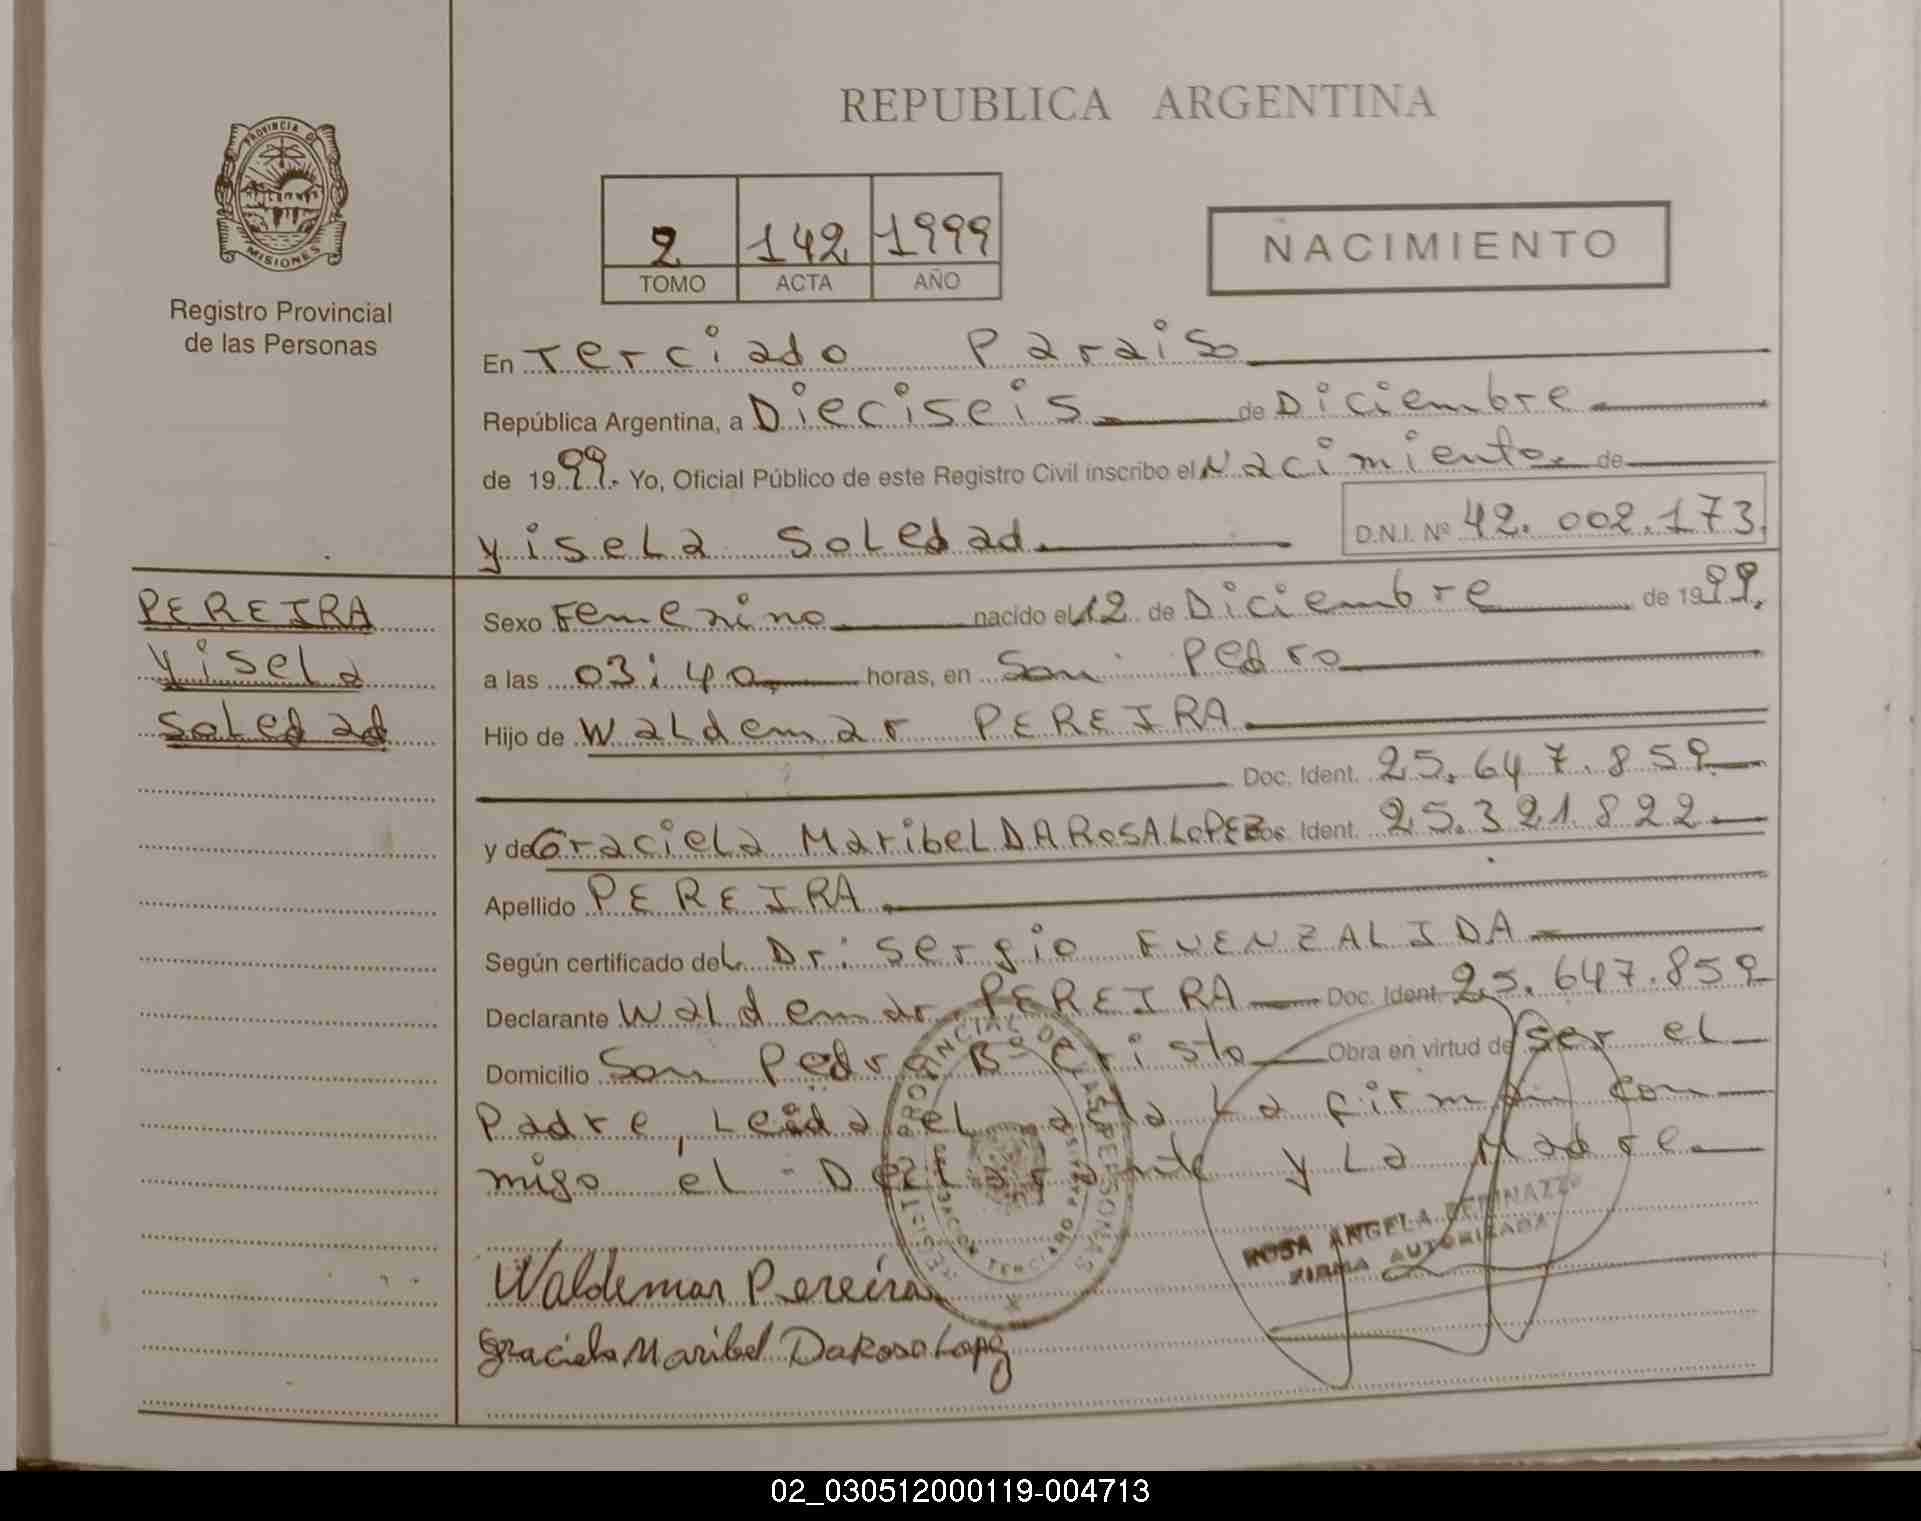 REPUBLICA ARGENTINA
PROVINCIA DE
MISIONES
Registro Provincial
de las Personas
2 142 1999
TOMO ACTA AÑO
NACIMIENTO
En Terciado Paraiso
República Argentina, a Dieciseis de Diciembre
de 1999.- Yo, Oficial Público de este Registro Civil inscribo el Nacimiento de
Yisela Soledad
D.N.I. Nº 42.002.173.
PEREIRA
Yisela
Soledad
Sexo Femenino nacido el 12 de Diciembre de 1999.
a las 03:40 horas, en San Pedro
Hijo de Waldemar PEREIRA
Doc. Ident. 25.647.859
y de Graciela Maribel DA ROSA LOPEZ Doc. Ident. 25.321.822
Apellido PEREIRA
Según certificado del Dr: Sergio FUENZALIDA
Declarante Waldemar PEREIRA Doc. Ident. 25.647.859
Domicilio San Pedro Bº Cristo Obra en virtud de ser el
Padre, Leida el acta La firman con
migo el Declarante y La Madre
Waldemar Pereira
Graciela Maribel Da Rosa Lopez
ROSA ANGELA
FIRMA AUTORIZADA
02_030512000119-004713